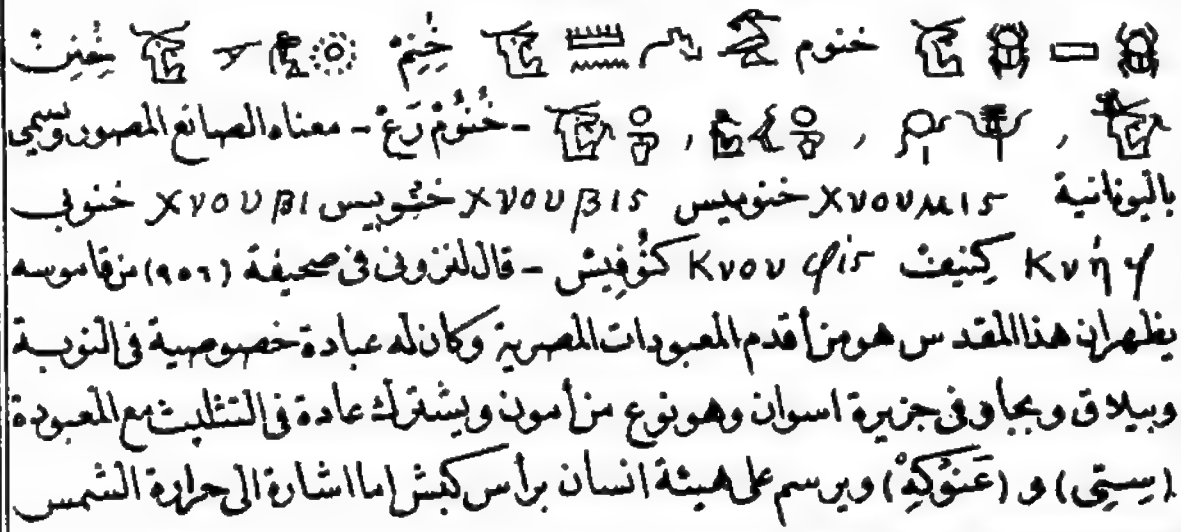 خنوم خِنِمْ خِنِتْ
- خْنُومْ رَعْ - معناه الصانع المصور ويسمى
باليونانية Χνουμις خنوميس Χνουβις خنوبيس Χνουβι خنوبى
Κνήφ كِنيفْ Κνουφίς كنُوفِيسْ - قال لنزونى فى صحيفة (٩٥٦) من قاموسه
يظهر ان هذا المقدس هو من أقدم المعبودات المصرية وكان له عبادة خصوصية فى النوبة
وبيلاق وبجاو فى جزيرة اسوان وهو نوع من أمون ويشترك عادة فى التثليث مع المعبودة
(سِبتِى) و (عَنُوكِهْ) ويرسم على هيئة انسان برأس كبش إما اشارة الى حرارة الشمس